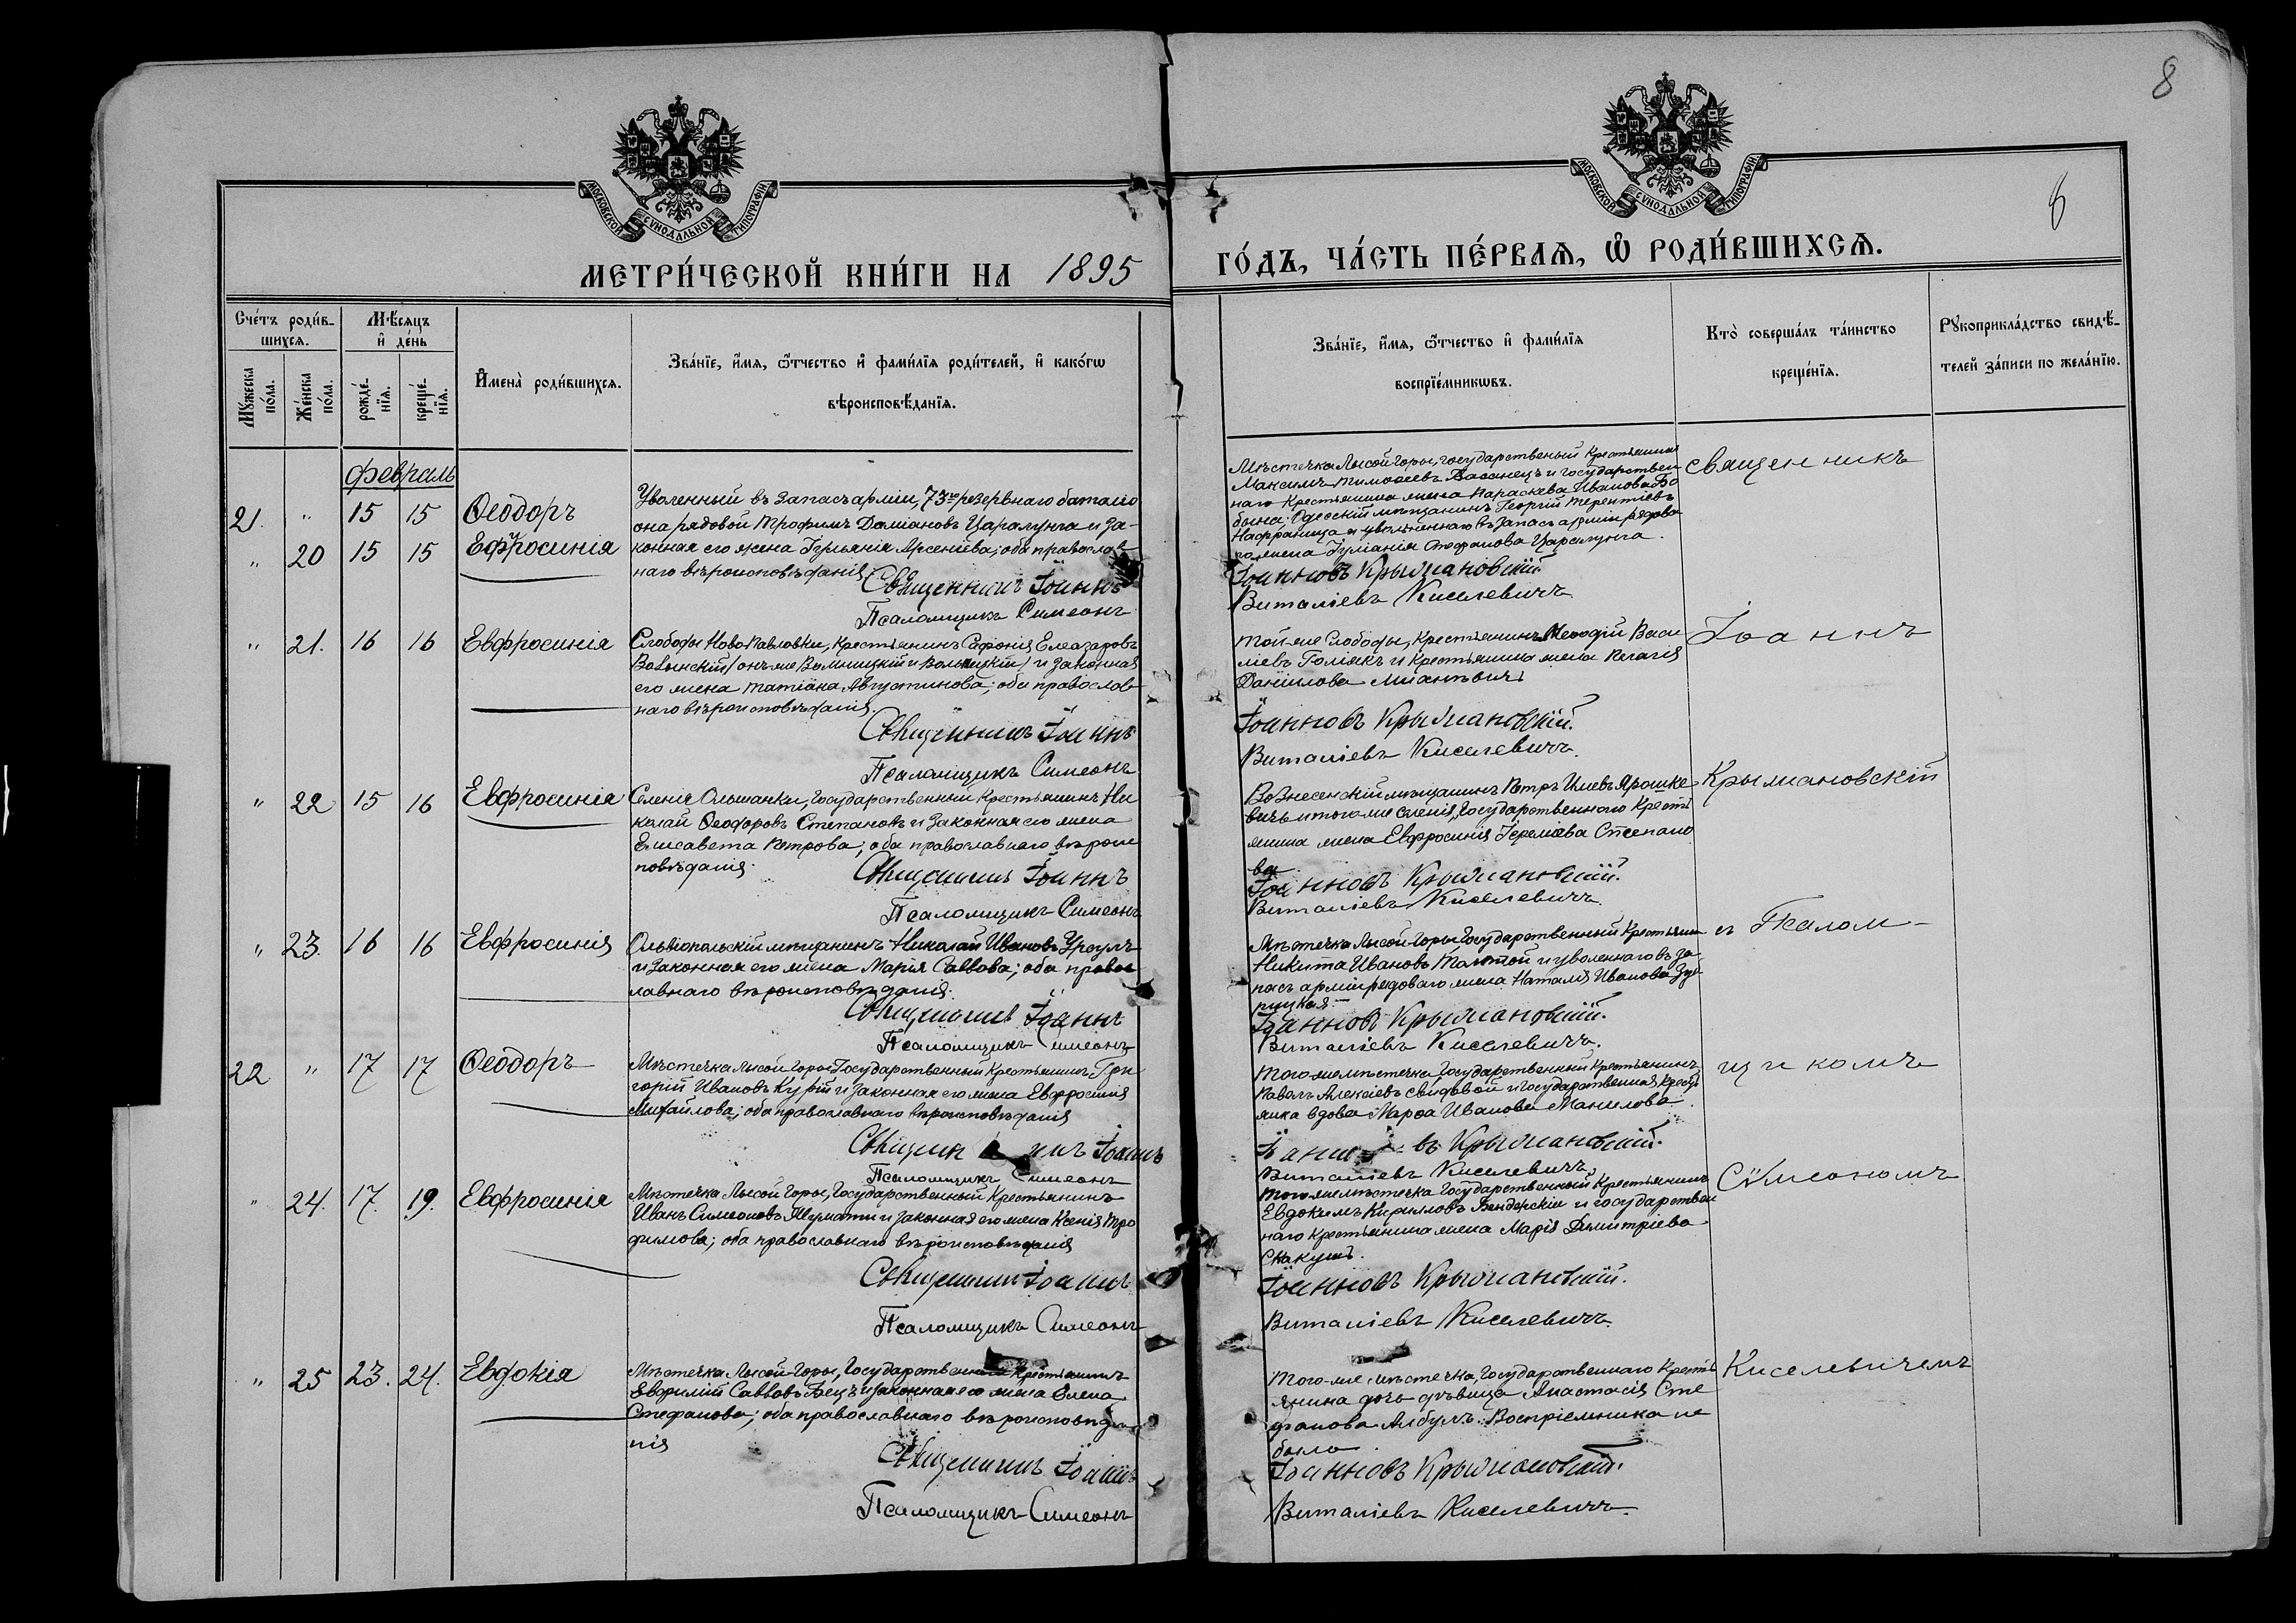 8
8
МОСКОВСКОЙ СѴНОДАЛЬНОЙ ТИПОГРАФІИ
МОСКОВСКОЙ СѴНОДАЛЬНОЙ ТИПОГРАФІИ
МЕТРИ́ЧЕСКОЙ КНИ́ГИ НА 1895
ГО́ДЪ, ЧА́СТЬ ПЕ́РВАѦ, Ѡ҆ РОДИ́ВШИХСѦ.
Сче́тъ роди́в-
шихсѧ.
Мꙋ́жеска по́ла.
Же́нска по́ла.
Мѣ́сѧцъ
и҆ де́нь
рожде́-
нїѧ.
креще́-
нїѧ.
И҆мена̀ роди́вшихсѧ.
Зва́нїе, и҆́мѧ, ѻ҆́тчество и҆ фами́лїѧ роди́телей, и҆ како́гѡ
вѣроисповѣ́данїѧ.
Зва́нїе, и҆́мѧ, ѻ҆́тчество и҆ фами́лїѧ
воспрїе́мникѡвъ.
Кто̀ соверша́лъ та́инство
креще́нїѧ.
Рꙋкоприкла́дство свидѣ́-
телей за́писи по жела́нїю.
февраль
21. " 15 15 Ѳеодоръ
" 20 15 15 Ефросинія
Уволенный въ запасъ арміи, 73го резервнаго баталіо
она рядовой Трофимъ Даміановъ Царалунга и за-
конная его жена Іуліанія Арсеніева; оба православ
наго вѣроисповѣданія
Священникъ Іоаннъ
Псаломщикъ Симеонъ
Мѣстечка Лысой Горы, государственый крестьянинъ
Максимъ Тимофеевъ и государствен
наго крестьянина жена Параскева Иванова Бо
Одесскій мѣщанинъ Георгій Терентіевъ
и уволеннаго въ запасъ арміи рядова
го жена Іуліанія Стефанова Царалунга.
Іоанновъ Крыжановскій.
Виталіевъ Киселевичъ
священникъ
" 21. 16 16 Евфросинія
Слободы Ново Павловки, крестьянинъ Сафоній Елеазаровъ
Волынскій / онъ же и / и законная
его жена Татіана Августинова; оба православ
наго вѣроисповѣданія.
Священникъ Іоаннъ
Псаломщикъ Симеонъ
Той же Слободы, крестьянинъ Меѳодій Васи
ліевъ Голякъ и крестьянина жена Пелагія
Даніилова
Іоанновъ Крыжановскій.
Виталіевъ Киселевичъ.
Іоаннъ
" 22 15 16 Евфросинія
Селенія Ольшанки, государственный крестьянинъ Ни
колай Ѳеодоровъ Степановъ и законная его жена
Елисавета Петрова; оба православнаго вѣроис
повѣданія.
Священникъ Іоаннъ
Псаломщикъ Симеонъ
Вознесенскій мѣщанинъ Петръ Ильевъ Ярошке
вичъ и того же селенія, государственного кресть
янина жена Евфросинія Іереміева Степано
ва
Іоанновъ Крыжановскій.
Виталіевъ Киселевичъ.
Крыжановскій
" 23. 16 16 Евфросинія
Ольвіопольскій мѣщанинъ Николай Ивановъ
и законная его жена Марія Саввова; оба правос
лавнаго вѣроисповѣданія.
Священникъ Іоаннъ
Псаломщикъ Симеонъ
Мѣстечка Лысой-Горы государственный крестьянин
Никита Ивановъ Толстой и уволеннаго въ за-
пасъ арміи рядоваго жена Наталія Иванова
Іоанновъ Крыжановскій.
Виталіевъ Киселевичъ.
съ Псалом-
22 " 17 17 Ѳеодоръ
Мѣстечка Лысой Горы государственный крестьянинъ, Гри
горій Ивановъ Курій и законная его жена Евфросинія
Михайлова; оба православнаго вѣроисповѣданія
Священникъ Іоаннъ
Псаломщикъ Симеонъ
Того-же мѣстечка государственный крестьянинъ
Павелъ Алексіевъ и государственная кресть
янка вдова Марѳа Иванова Манилова
Іоанновъ Крыжановскій.
Виталіевъ Киселевичъ.
щикомъ
" 24. 17. 19. Евфросинія
Мѣстечка Лысой Горы, государственный крестьянинъ
Иванъ Симеоновъ и законная его жена Ксенія Тро
фимова; оба православнаго вѣроисповѣданія
Священникъ Іоаннъ
Псаломщикъ Симеонъ
Того-же мѣстечка государственный крестьянинъ
Евдокимъ Кирилловъ Бендерскій и государствен
наго крестьянина жена Марія Димитріева
Скакунъ.
Іоанновъ Крыжановскій.
Виталіевъ Киселевичъ.
Симеономъ
" 25 23. 24. Евдокія
Мѣстечка Лысой-Горы, государственный крестьянинъ
Евфимій Саввовъ Бецъ и законная его жена Елена
Стефанова; оба православнаго вѣроисповѣда
нія
Священникъ Іоаннъ
Псаломщикъ Симеонъ
Того-же мѣстечка, государственнаго кресть
янина дочь дѣвица Анастасія Сте
фанова Албулъ. Воспріемника не
было.
Іоанновъ Крыжановскій.
Виталіевъ Киселевичъ.
Киселевичемъ